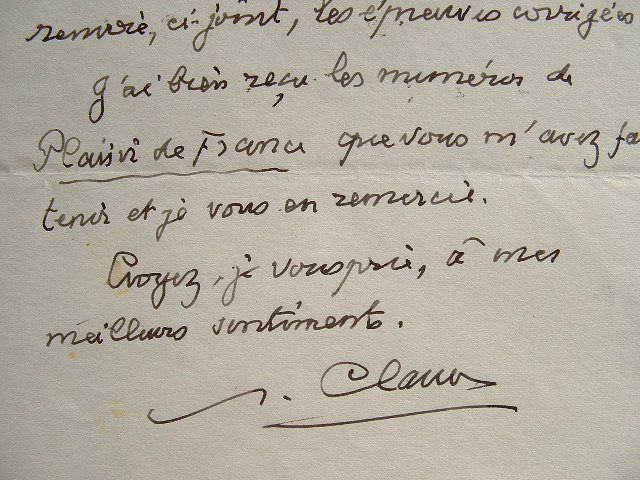 remercie, ci-joint, les épreuves corrigées
J'ai bien reçu les numéros de
Plaisir de France que vous m'avez fa
tenir et je vous en remercie.
Croyez, je vous prie, à mes
meilleurs sentiments.